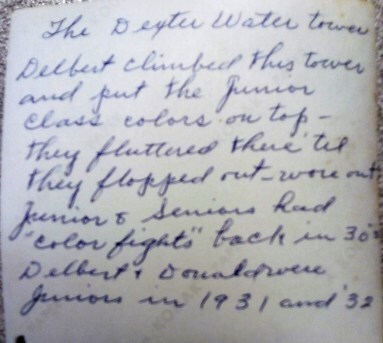 The Dexter Water tower
Delbert climbed this tower
and put the Junior
class colors on top -
they fluttered there til
they flopped out - wore out
Junior & Seniors had
"color fights" back in 30's
Delbert & Donald were
juniors in 1931 and '32